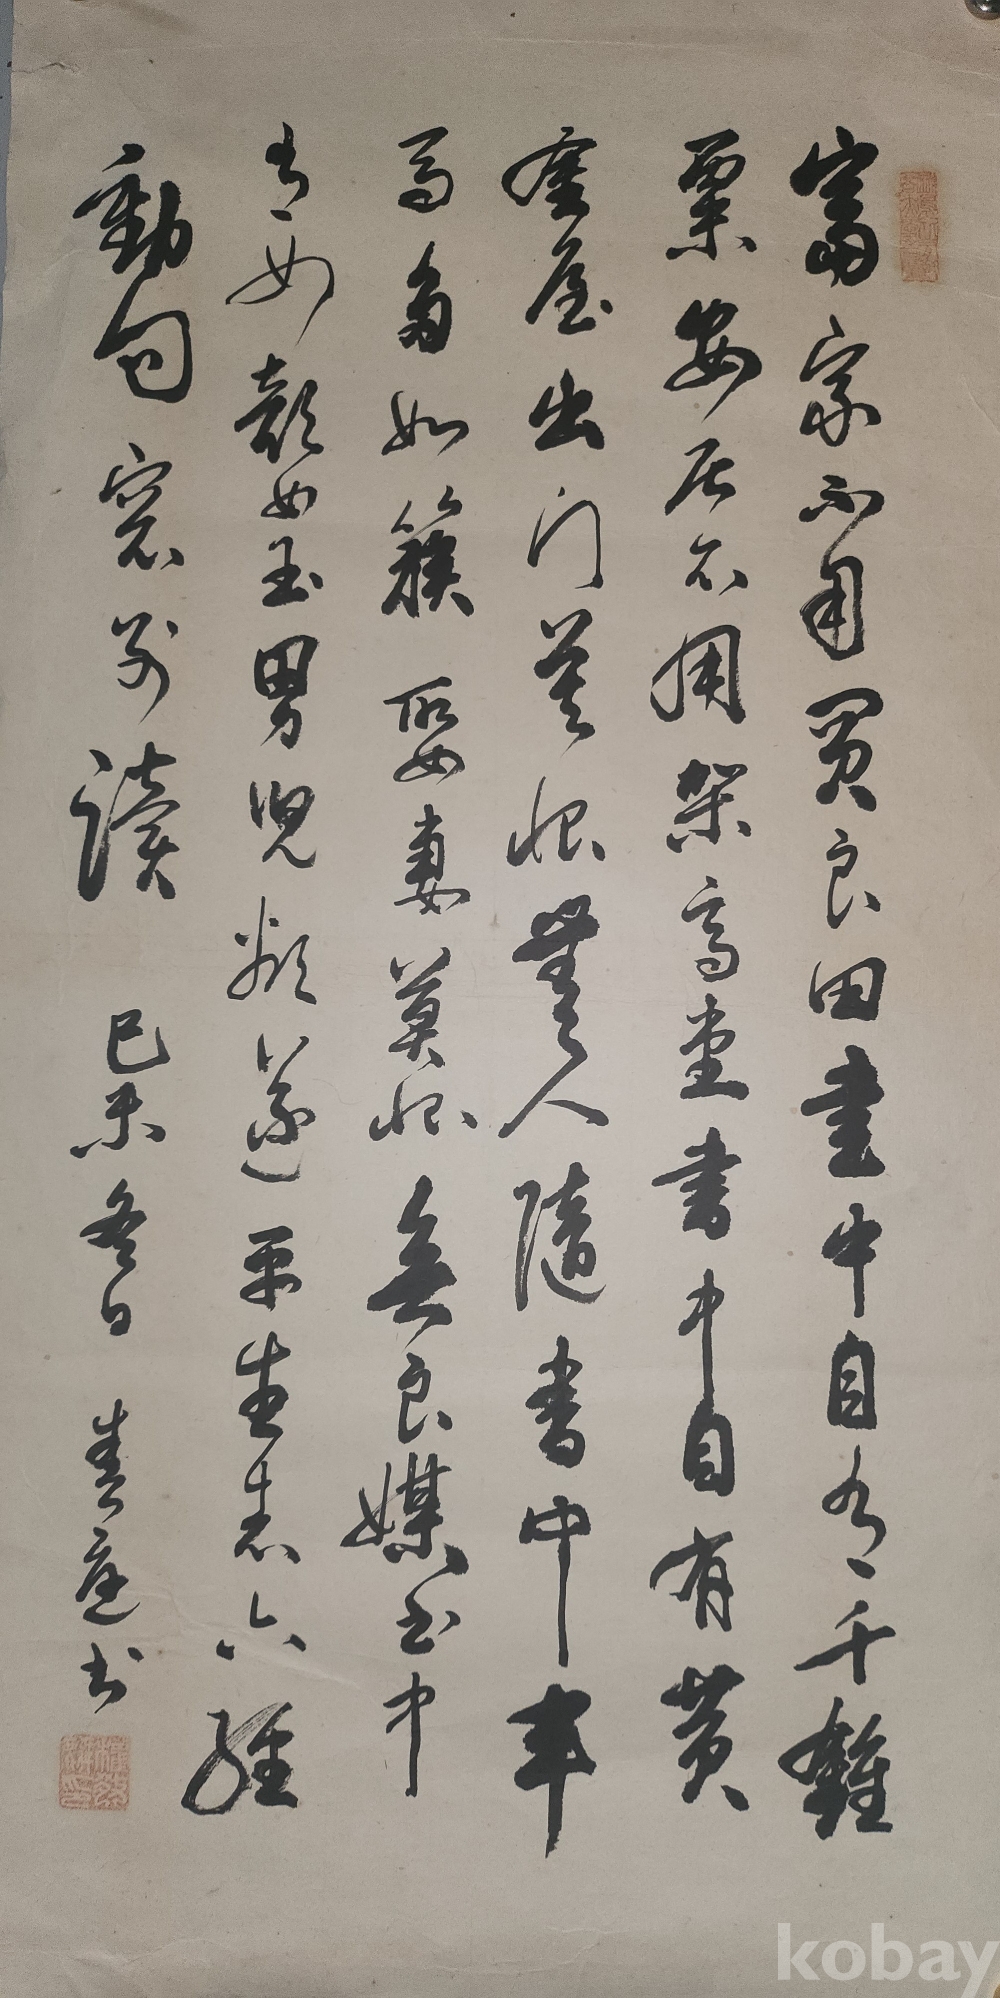 富家不用買良田書中自有千鍾
粟安居不用架高堂書中自有黃
金屋出門莫恨無人隨書中車
馬多如簇娶妻莫恨無良媒書中
有女顏如玉男兒欲遂平生志六經
勤向窓前讀 己未冬日 庭書
kobay